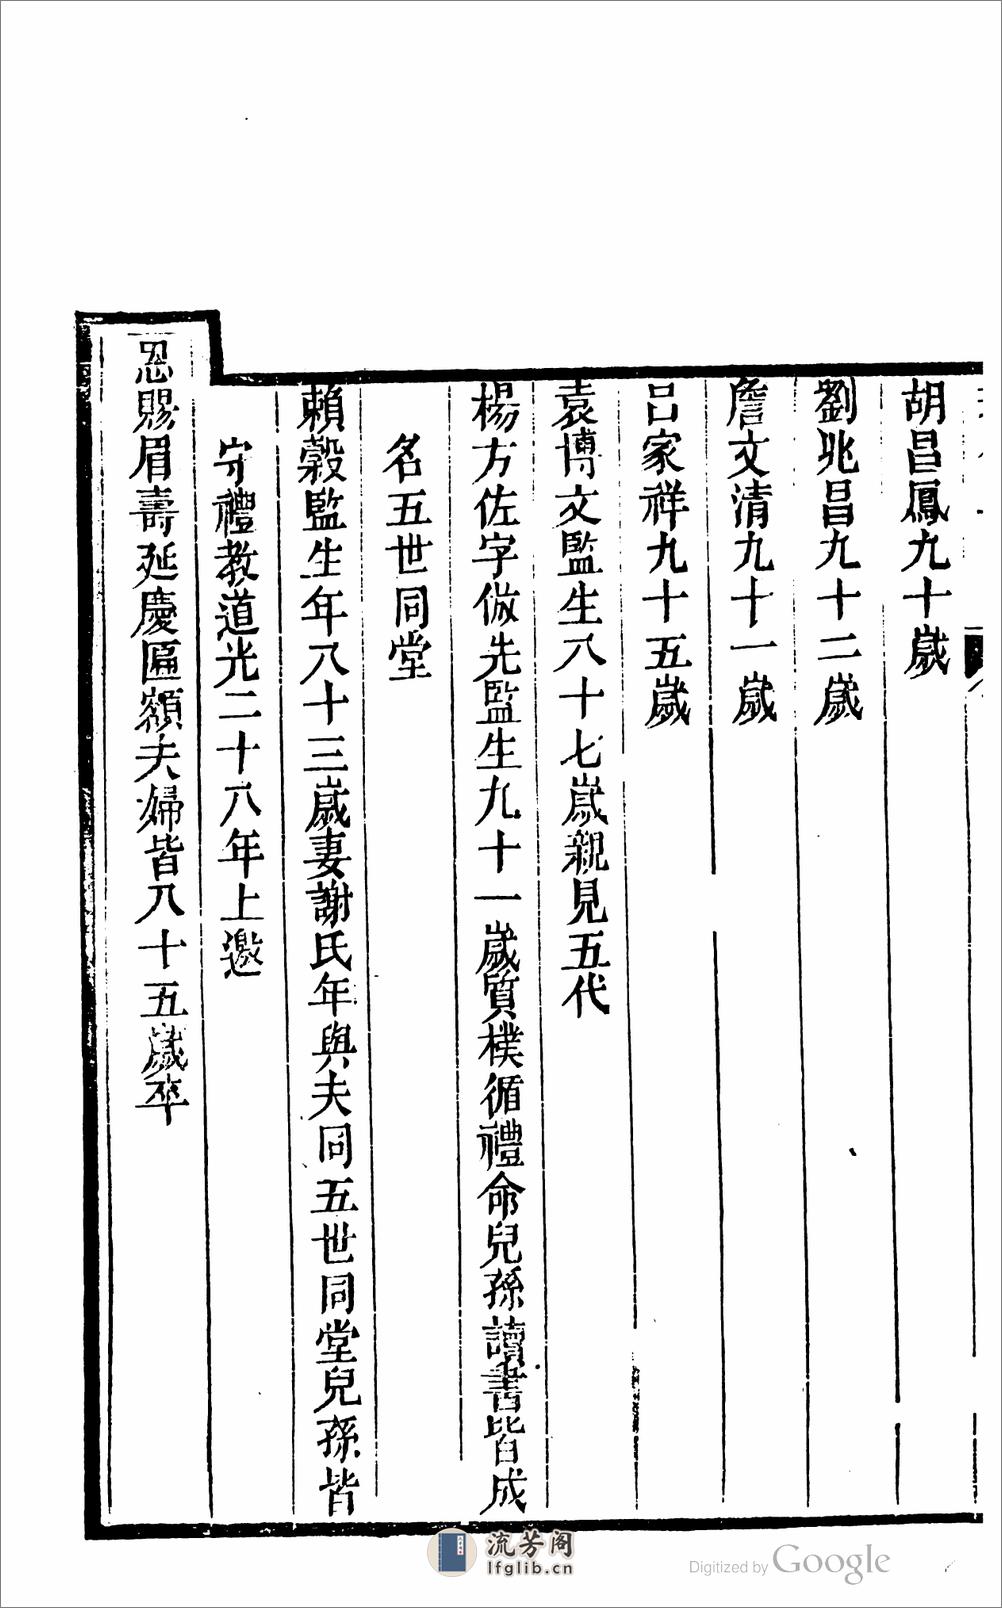 胡昌鳳九十歲
劉兆昌九十二歲
詹文清九十一歲
呂家祥九十五歲
袁博文監生八十七歲親見五代
楊方佐字倣先監生九十一歲質樸循禮命兒孫讀書皆成
名五世同堂
賴榖監生年八十三歲妻謝氏年與夫同五世同堂兒孫皆
守禮教道光二十八年上邀
恩賜眉壽延慶匾額夫婦皆八十五歲卒
流芳阁
lfglib.cn
Digitized by Google